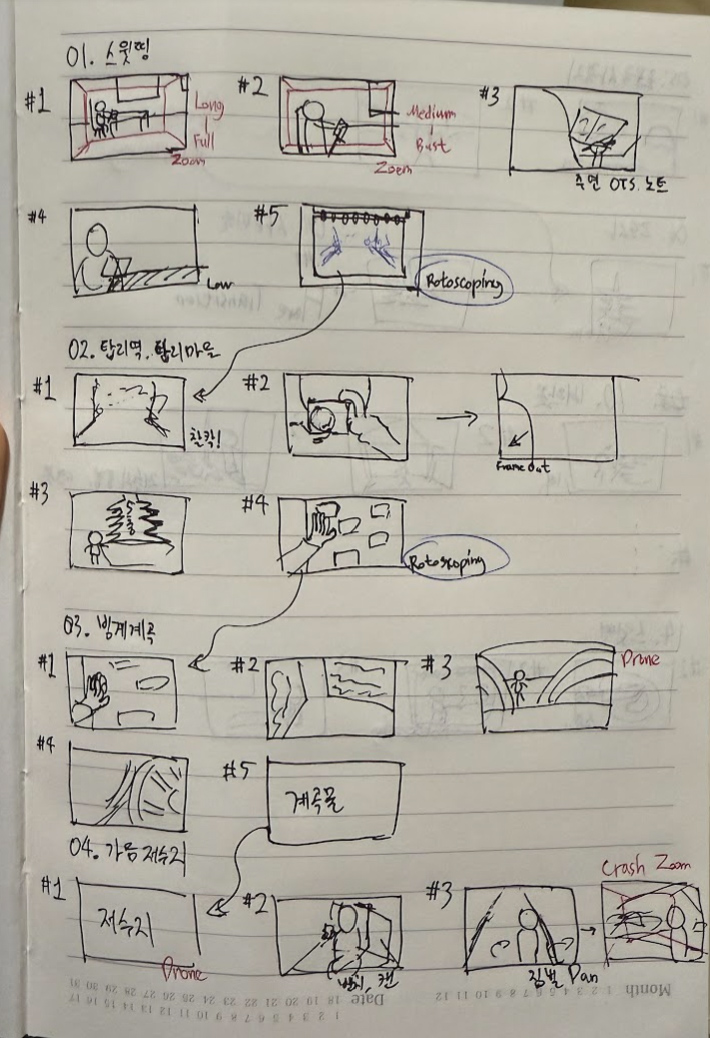 01. 스윗띵
#1
Long
Full
Zoom
#2
Medium
Bust
Zoom
#3
측면 OTS. 노트
#4
Low
#5
Rotoscoping
02. 탑리역, 탑리마을
#1
찰칵!
#2
Frame Out
#3
#4
Rotoscoping
03. 빙계계곡
#1
#2
#3
Drone
#4
#5
계곡물
04. 가음저수지
#1
저수지
Drone
#2
벤치, 캔
#3
짐벌 Pan
Crash Zoom
Month 1 2 3 4 5 6 7 8 9 10 11 12
Date 1 2 3 4 5 6 7 8 9 10 11 12 13 14 15 16 17
18 19 20 21 22 23 24 25 26 27 28 29 30 31